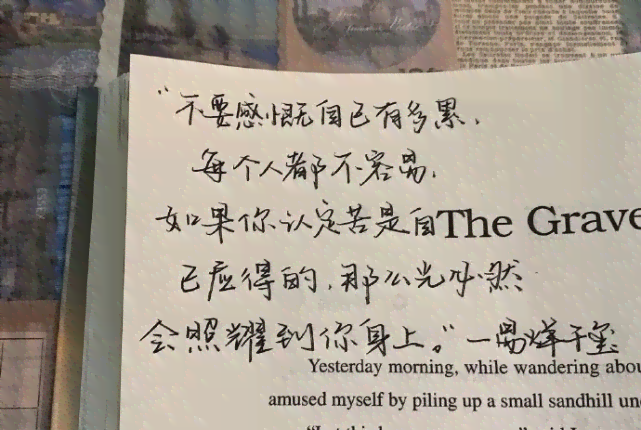 “不要感慨自己有多累，
每个人都不容易，
如果你认定苦是自
The Grave
己应得的，那么光必然
会照耀到你身上。”—易烊千玺
Yesterday morning, while wandering abou
amused myself by piling up a small sandhill un